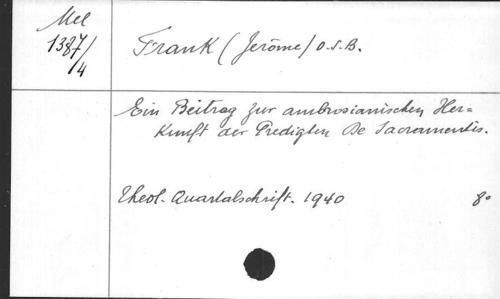 Mel
1387/
14
Frank (Jerôme) O.S.B.
Ein Beitrag zur ambrosianischen Her=
kunft der Predigten De Sacramentis.
Theol. Quartalschrift. 1940 8º